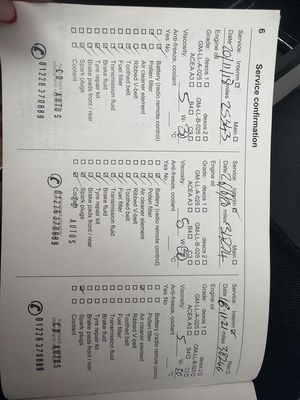 6
Service confirmation
Service: Interim Main
Date 20/11/18 miles 25343
Engine oil
Grade: dexos 1 dexos 2
GM-LL-A-025 GM-LL-B-025
ACEA A3 B4 C3
Viscosity: 5 W- 30
Anti-freeze, coolant
Yes No
Battery (radio remote control)
Pollen filter
Air cleaner element
Ribbed V-belt
Toothed belt
Fuel filter
Transmission fluid
Tyre repair kit
Brake fluid
Brake pads front / rear
Spark plugs
Coolant
CO AUTOS
01226370889
Service: Interim Main
Date miles
Engine oil
Grade: dexos 1 dexos 2
GM-LL-A-025 GM-LL-B-025
ACEA A3 B4 C3
Viscosity: 5 W- 30
Anti-freeze, coolant
Yes No
Battery (radio remote control)
Pollen filter
Air cleaner element
Ribbed V-belt
Toothed belt
Fuel filter
Transmission fluid
Tyre repair kit
Brake fluid
Brake pads front / rear
Spark plugs
Coolant
AUTOS
01226370889
Service: Interim Main
Date miles 38266
Engine oil
Grade: dexos 1 dexos 2
GM-LL-A-025 GM-LL-B-025
ACEA A3 B4 C3
Viscosity: 5 W- 30
Anti-freeze, coolant
Yes No
Battery (radio remote control)
Pollen filter
Air cleaner element
Ribbed V-belt
Toothed belt
Fuel filter
Transmission fluid
Tyre repair kit
Brake fluid
Brake pads front / rear
Spark plugs
Coolant
AUTOS
01226370889